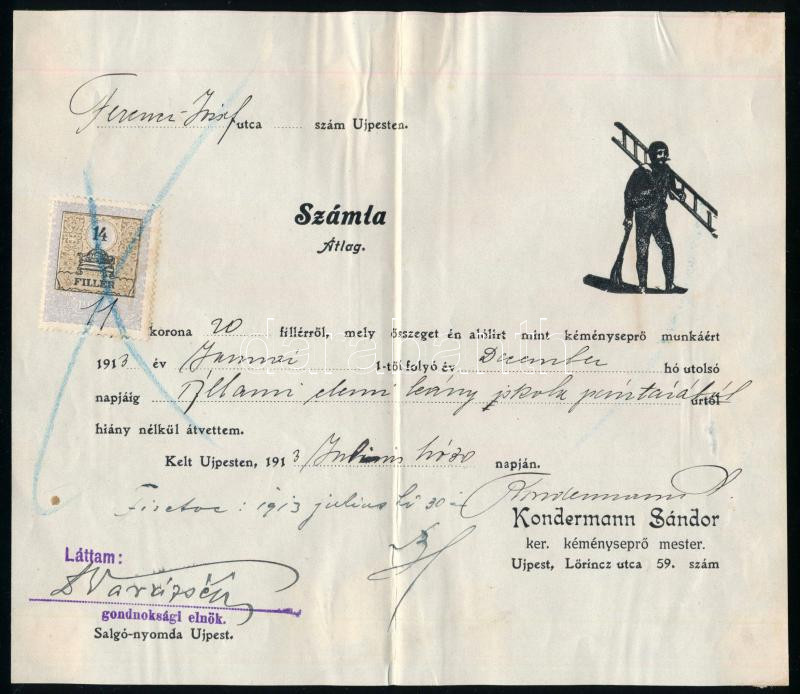 Ferenc-József utca ...... szám Ujpesten.
Számla
Átlag.
14
FILLÉR
11 korona 20 fillérről, mely összeget én alólirt mint kéményseprő munkáért
1913 év Januári 1-től folyó év December hó utolsó
napjáig Állami elemi leány iskola pénztárából úrtól
hiány nélkül átvettem.
Kelt Ujpesten, 1913 Julius hó 30 napján.
Fizetve: 1913 julius hó 30-
Kondermann S.
Kondermann Sándor
ker. kéményseprő mester.
Ujpest, Lőrincz utca 59. szám
Láttam:
gondnoksági elnök.
Salgó-nyomda Ujpest.
darabanth